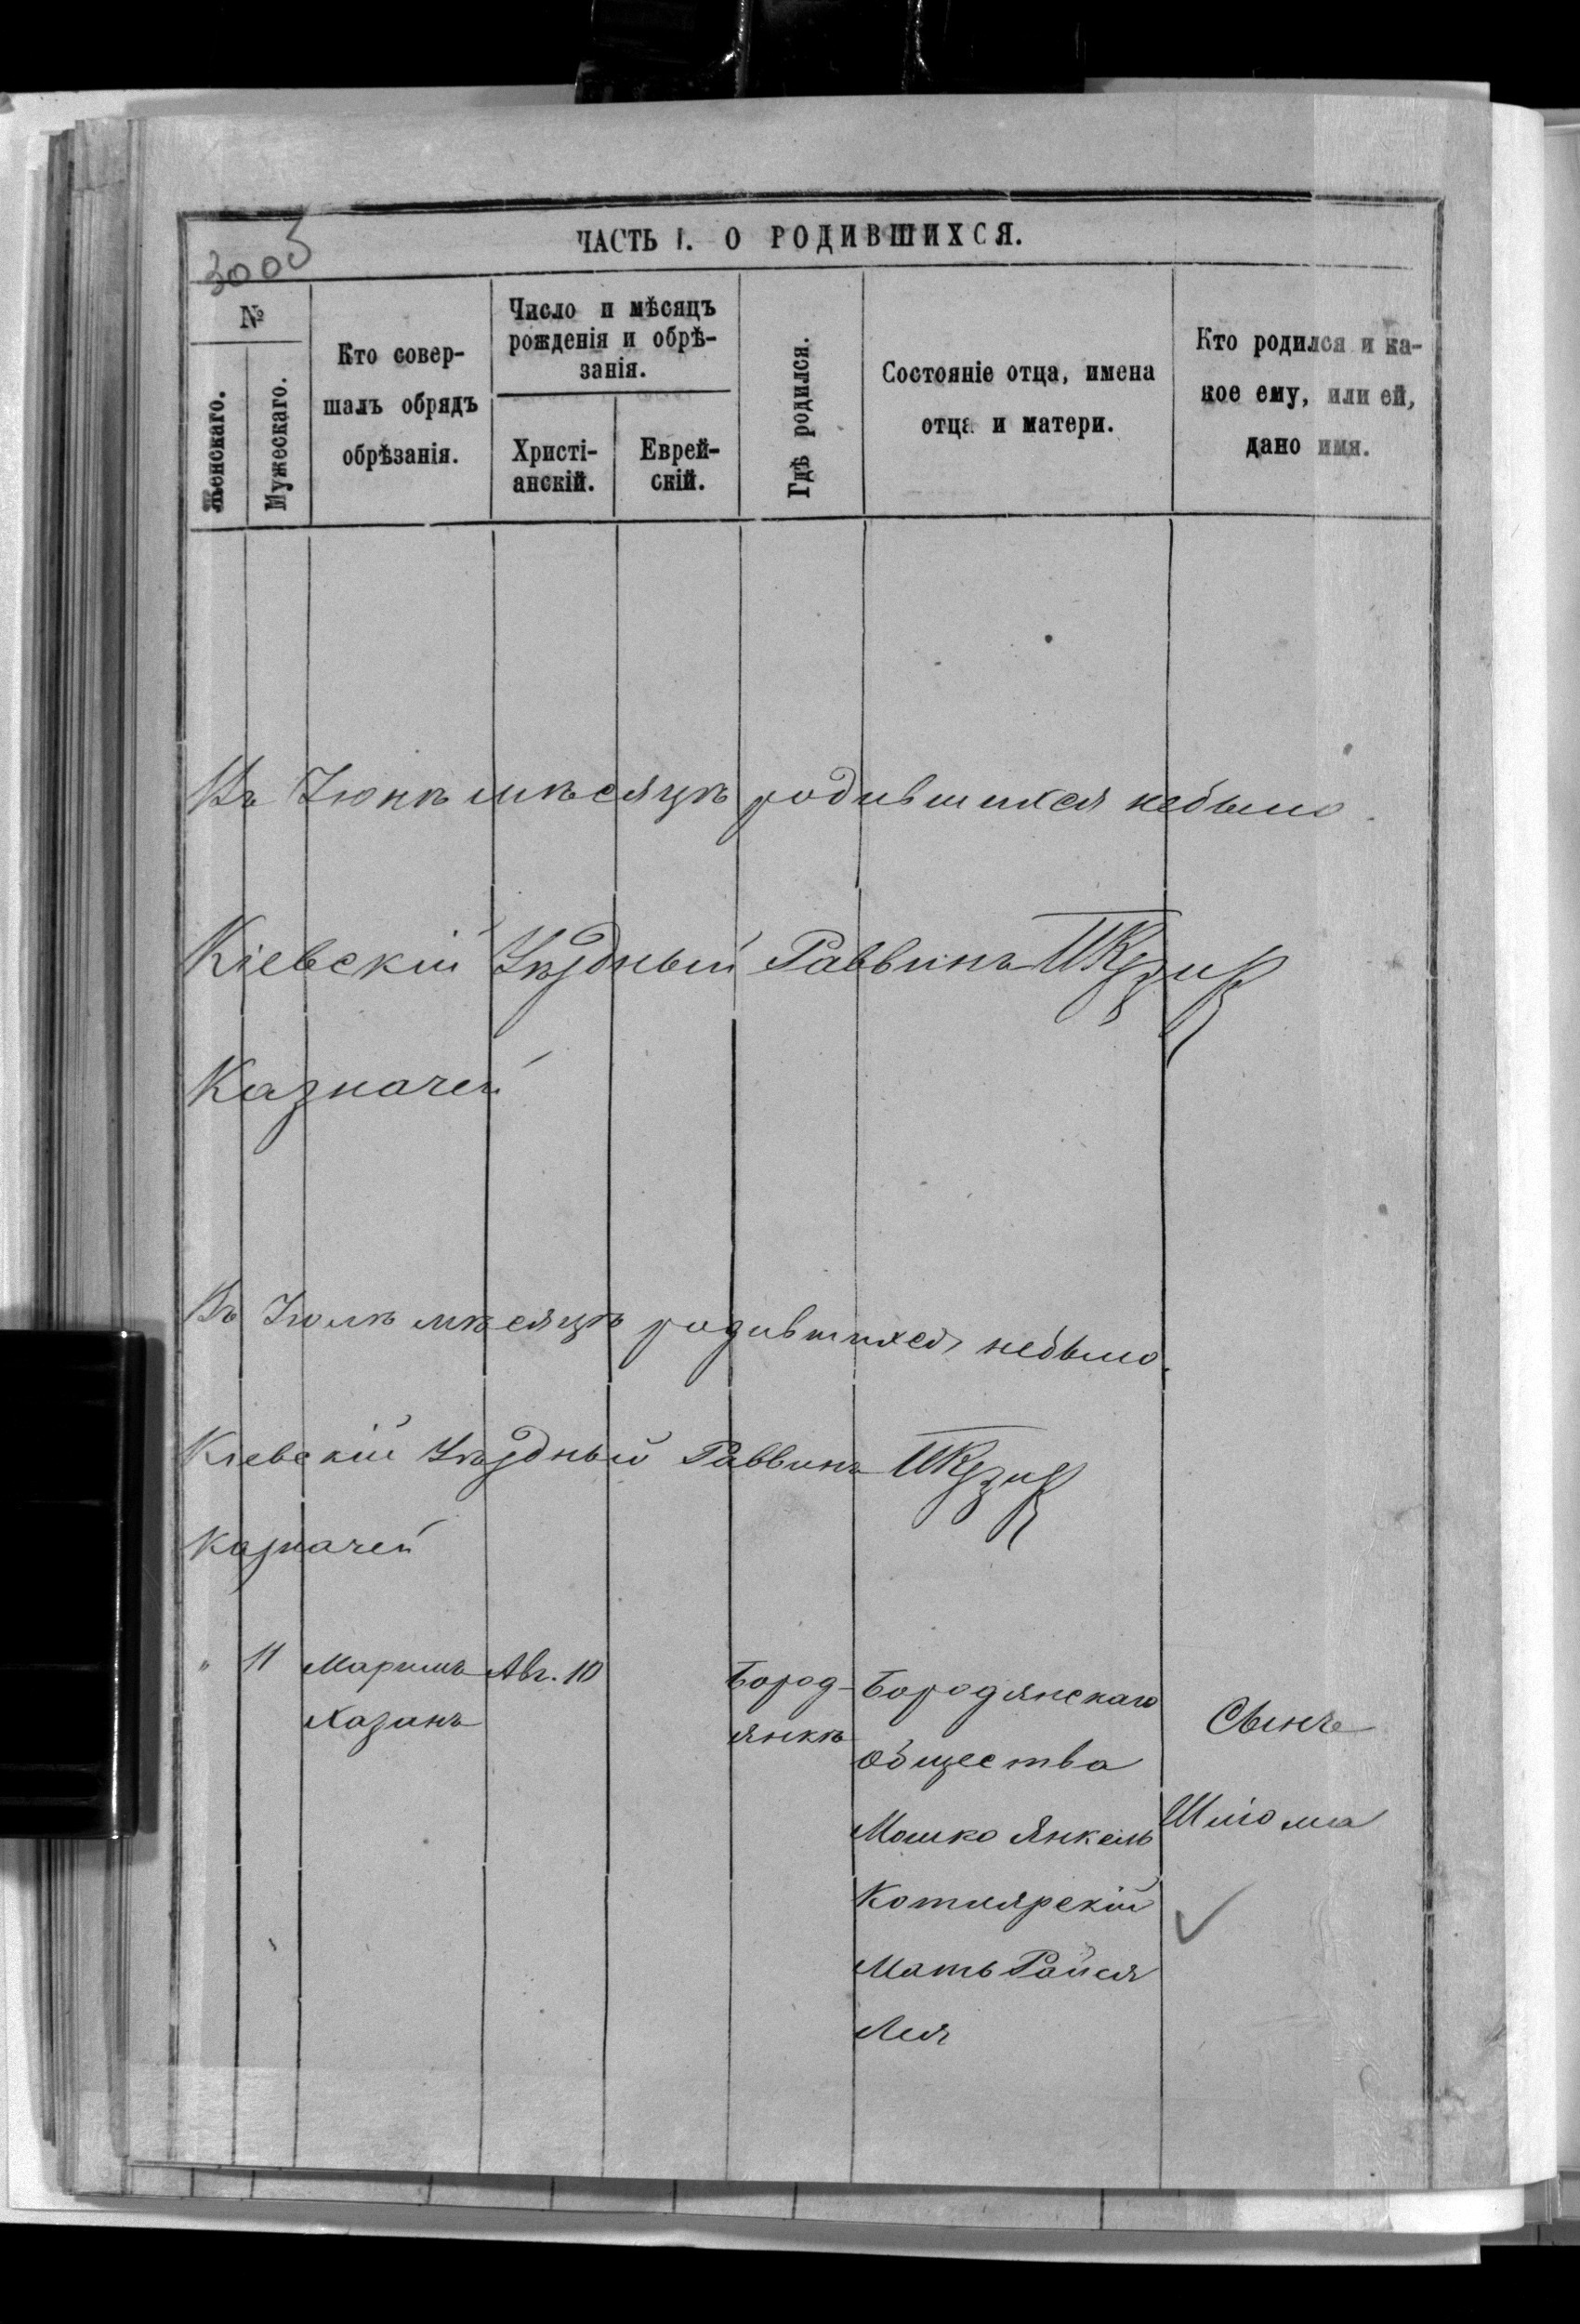 3005
ЧАСТЬ I. О РОДИВШИХСЯ.
№
Женскаго.
Мужескаго.
Кто совер-
шалъ обрядъ
обрѣзанія.
Число и мѣсяцъ
рожденія и обрѣ-
занія.
Христі-
анскій.
Еврей-
скій.
Гдѣ родился.
Состояніе отца, имена
отца и матери.
Кто родился и ка-
кое ему, или ей,
дано имя.
Въ Іюнѣ мѣсяцѣ родившихся небыло.
Кіевскій Уѣздный Раввинъ
Казначей
Въ Іюлѣ мѣсяцѣ родившихся небыло.
Кіевскій Уѣздный Раввинъ
Казначей
" 11
Хазанъ
Авг. 10
Бород-
янкѣ
Бородянскаго
общества
Мошко Янкель
Котлярскій
Мать Райся
Лея
Сынъ
Шлома